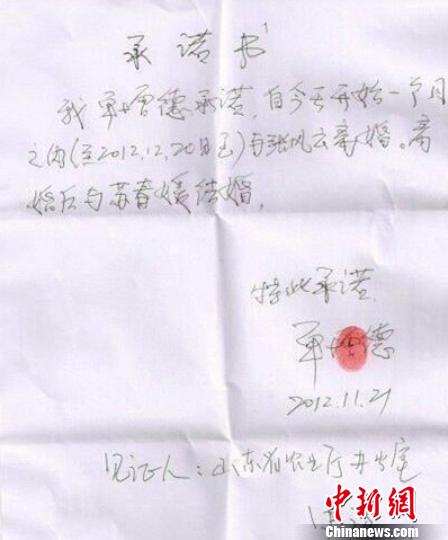 承诺书
我单增德承诺,自今天开始一个月
之内(至2012.12.20日至)与张风云离婚。离
婚后与苏春媛结婚,
特此承诺.
单增德
2012.11.21
见证人:山东省农业厅办公室
中新网
WWW.CHINANEWS.COM